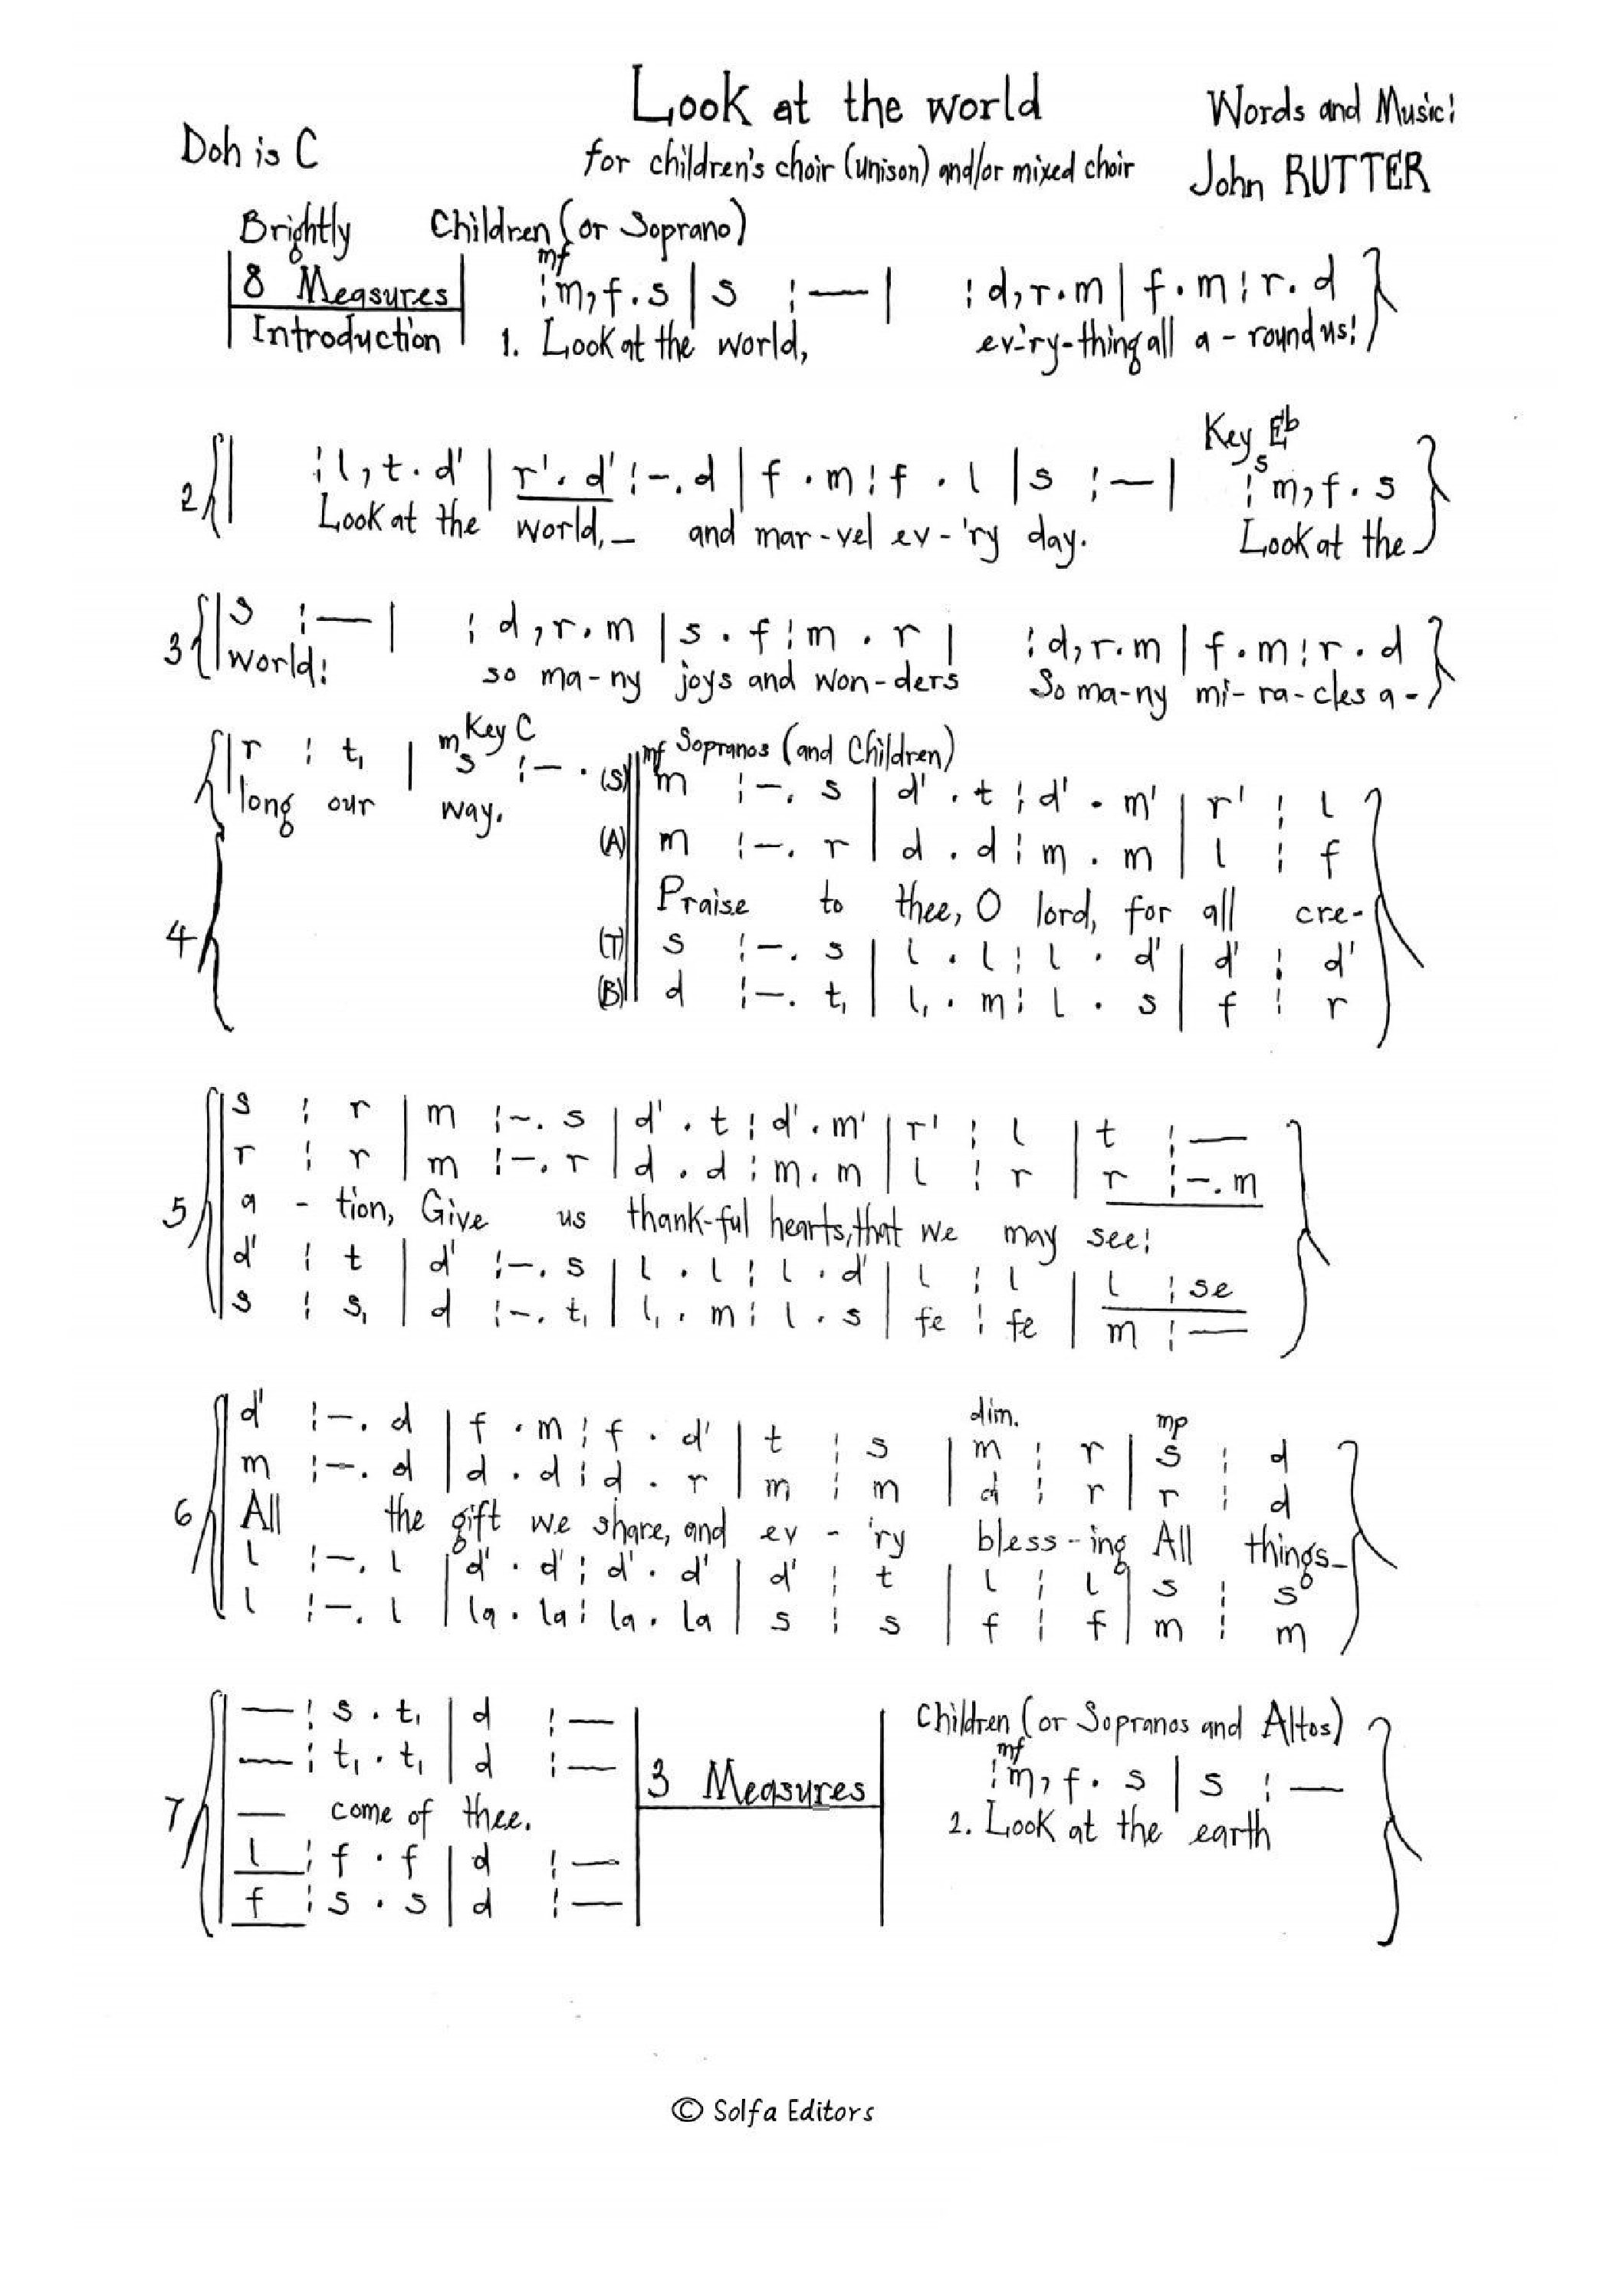 Look at the world
Words and Music:
Doh is C
for children's choir (unison) and/or mixed choir
John RUTTER
Brightly Children (or Soprano)
mf
8 Measures :m,f.s | s :— | :d,r.m | f.m:r.d
Introduction 1. Look at the world, ev-'ry-thing all a-round us!
Key Eb
2 :l,t.d' | r'.d':-.d | f.m:f.l | s :— | s :m,f.s
Look at the world,_ and mar-vel ev-'ry day. Look at the
3 s :— | :d,r.m | s.f:m.r | :d,r.m | f.m:r.d
world: so ma-ny joys and won-ders So ma-ny mi-ra-cles a-
Key C mf Sopranos (and Children)
r : t, | m s :—. (S) m :-.s | d'.t:d'.m' | r' : l
long our way.
(A) m :-.r | d.d:m.m | l : f
4 Praise to thee, O lord, for all cre-
(T) s :-.s | l.l:l.d' | d' : d'
(B) d :-.t, | l,.m:l.s | f : r
s : r | m :-.s | d'.t:d'.m' | r' : l | t :—
r : r | m :-.r | d.d:m.m | l : r | r :-.m
5 a - tion, Give us thank-ful hearts, that we may see:
d' : t | d' :-.s | l.l:l.d' | l : l | l : se
s : s, | d :-.t, | l,.m:l.s | fe : fe | m :—
dim. mp
d' :-.d | f.m:f.d' | t : s | m : r | s : d
m :-.d | d.d:d.r | m : m | d : r | r : d
6 All the gift we share, and ev-'ry bless-ing All things_
l :-.l | d'.d':d'.d' | d' : t | l : l | s : s
l :-.l | la.la:la.la | s : s | f : f | m : m
— : s.t, | d :— Children (or Sopranos and Altos)
— : t,.t, | d :— 3 Measures mf :m,f.s | s :—
7 — come of thee. 2. Look at the earth
l : f.f | d :—
f : s.s | d :—
© Solfa Editors